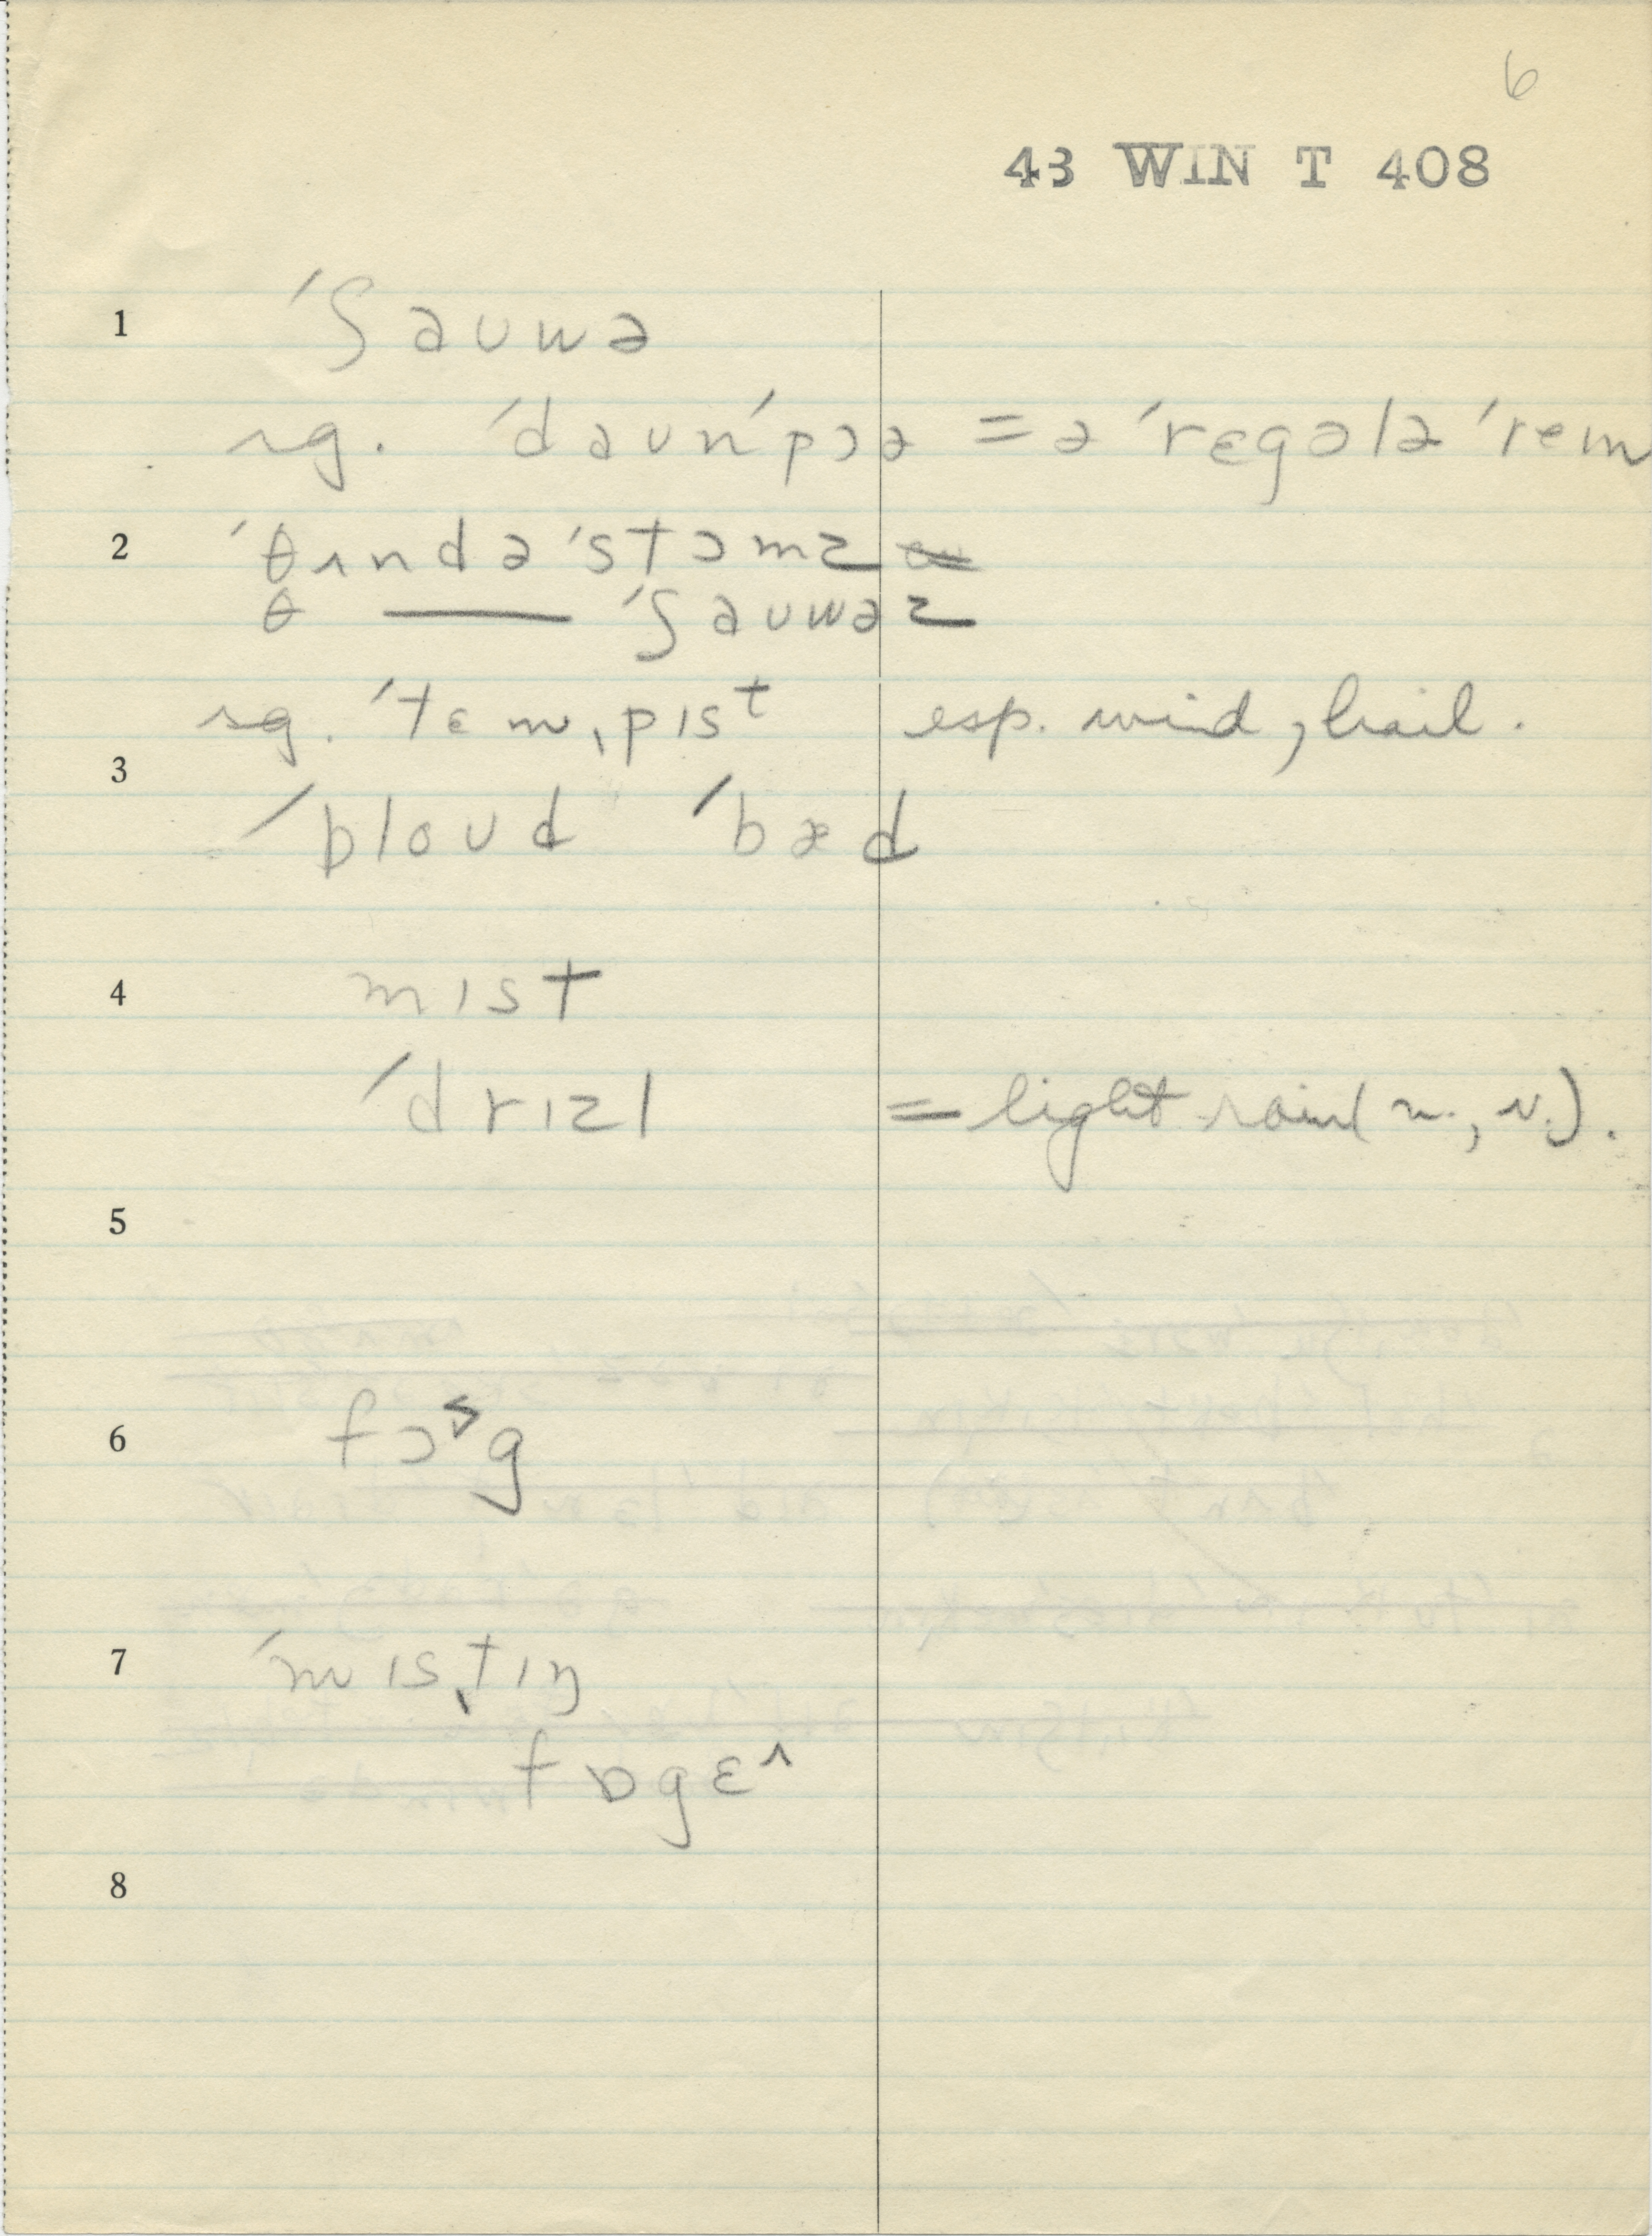 6
43 WIN T 408
1 ˈʃauwə
sg. ˈdaunˈpɔə = ə ˈrɛgələ ˈrem
2 ˈθʌndəˈstɔmz
θ — ˈʃauwəz
sg. ˈtɛmˌpɪsᵗ esp. wind, hail.
3
ˈbloud ˈbæd
4 mɪst
ˈdrɪzl = light rain (n., v.).
5
6 fɔ˃g
7 ˈmɪsˌtɪŋ
fɒgɛ^
8